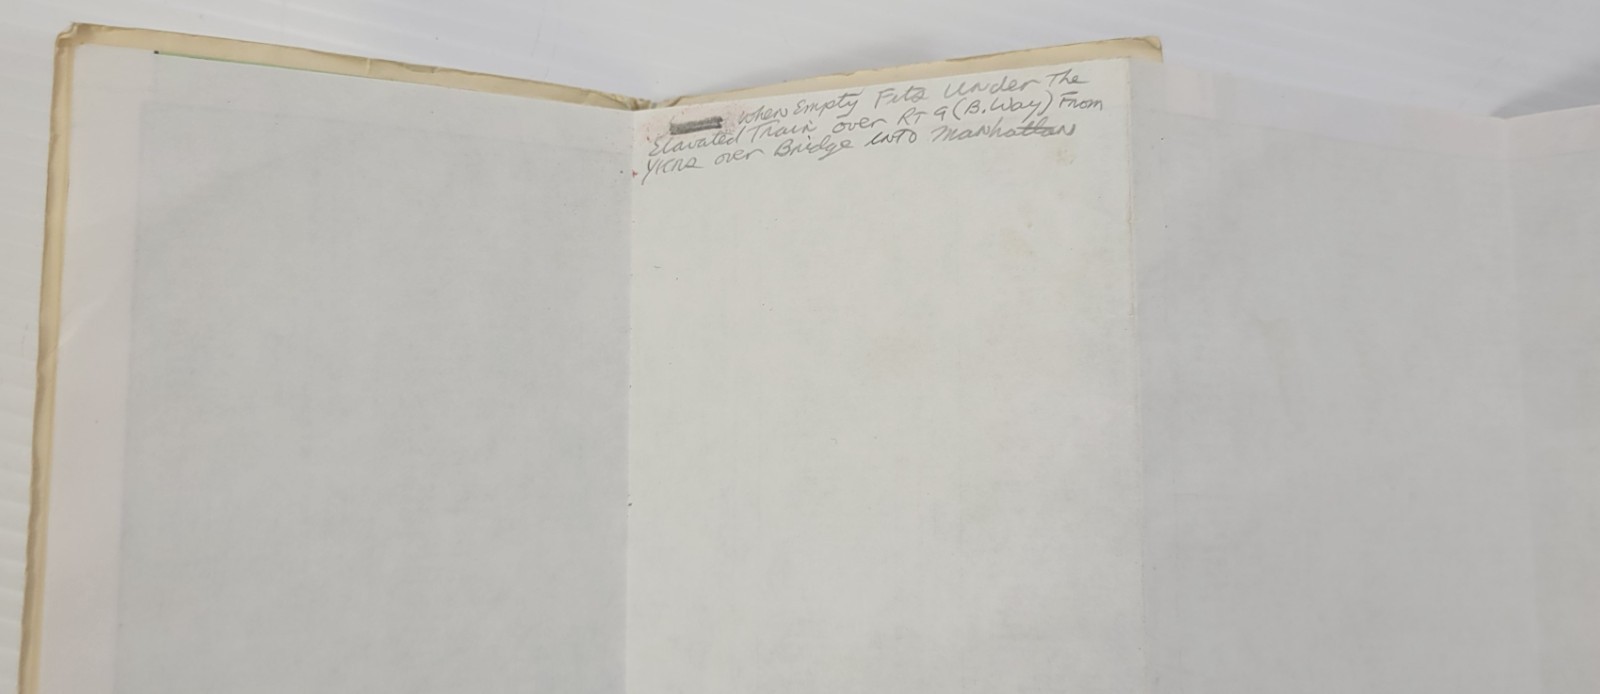 when Empty Fits Under The
Elavated Train over RT 9 (B.Way) From
Ykrs over Bridge into Manhattan